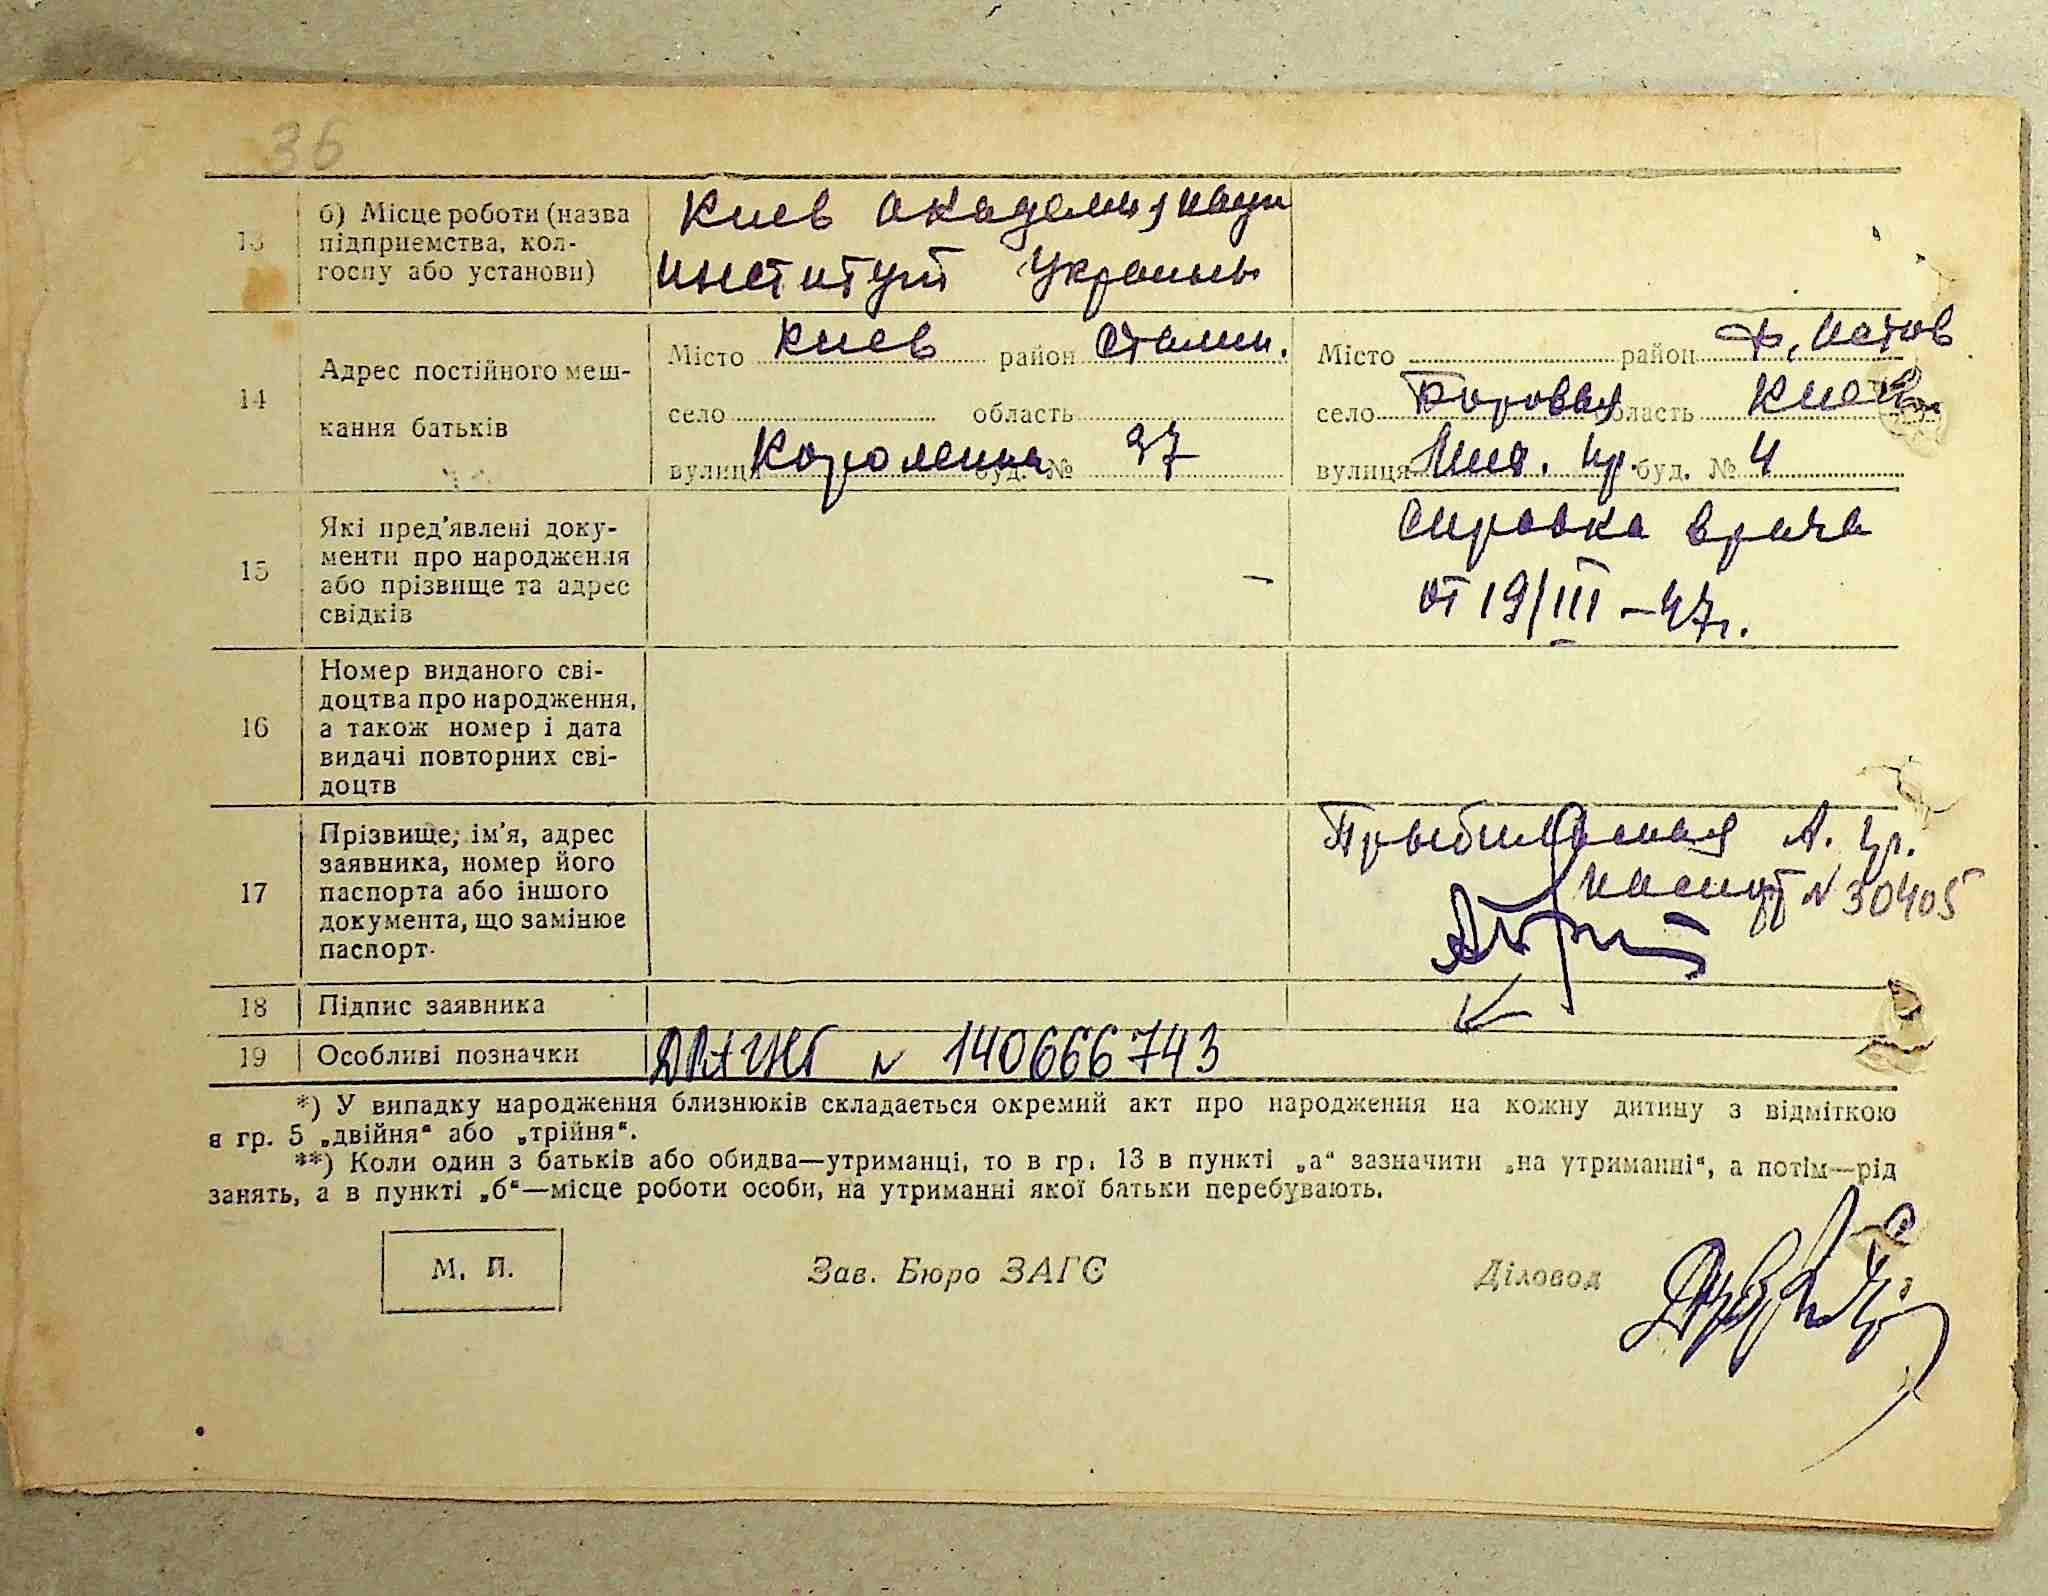 36
13 б) Місце роботи (назва Киев академия наук
підприємства, кол-
госпу або установи) институт Украины
14 Адрес постійного меш-
кання батьків
Місто Киев район Сталин. Місто район Фастов
село область село Боровая область Киев
вулиця Короленка буд. № 37 вулиця буд. № 4
15 Які пред'явлені доку-
менти про народження
або прізвище та адрес
свідків
Справка врача
от 19/III-47г.
16 Номер виданого сві-
доцтва про народження,
а також номер і дата
видачі повторних сві-
доцтв
17 Прізвище, ім'я, адрес
заявника, номер його
паспорта або іншого
документа, що замінює
паспорт
А. Гр.
паспорт № 30405
18 Підпис заявника
19 Особливі позначки № 140666743
*) У випадку народження близнюків складається окремий акт про народження на кожну дитину з відміткою
в гр. 5 „двійня“ або „трійня“.
**) Коли один з батьків або обидва—утриманці, то в гр. 13 в пункті „а“ зазначити „на утриманні“, а потім—рід
занять, а в пункті „б“—місце роботи особи, на утриманні якої батьки перебувають.
М. П. Зав. Бюро ЗАГС Діловод